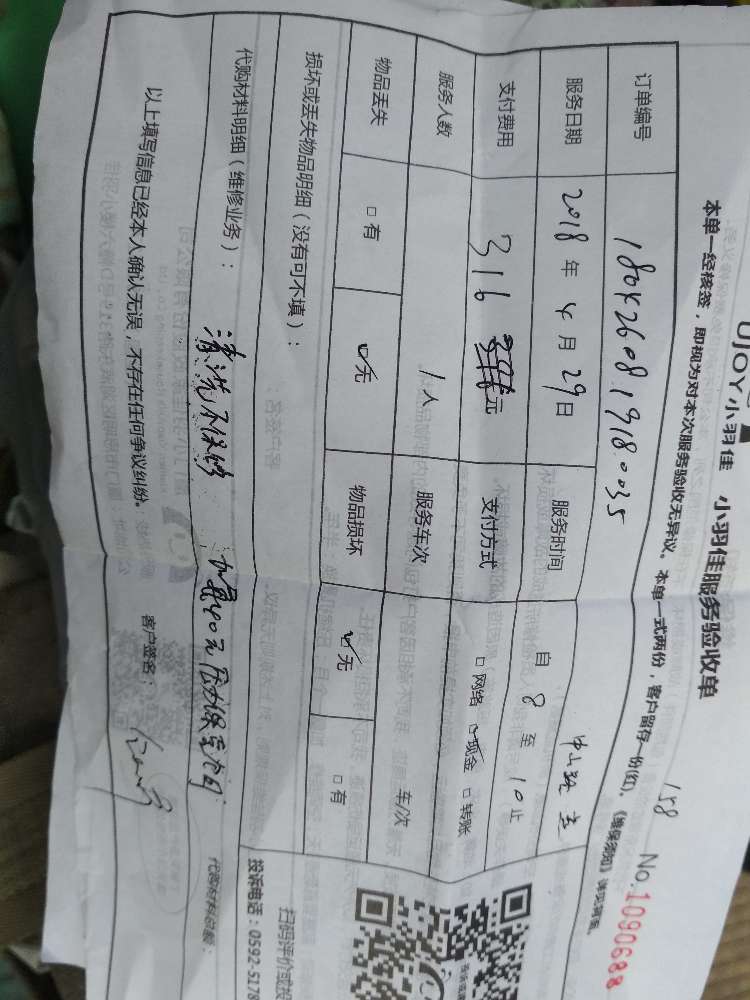 UJOY小羽佳 小羽佳服务验收单
158 No.1090688
本单一经核签，即视为对本次服务验收无异议。本单一式两份，客户留存一份(红)，《维保须知》详见背面。
订单编号 1804260819180035
服务日期 2018年4月29日 服务时间 自8至10止
支付费用 316 元 支付方式 □网络 ☑现金 □转账
服务人数 1人 服务车次 车/次
物品丢失 □有 ☑无 物品损坏 ☑无 □有
损坏或丢失物品明细（没有可不填）：
代购材料明细（维修业务）：
清洗不保修
代购材料总额：
以上填写信息已经本人确认无误，不存在任何争议纠纷。 客户签名：
扫码评价或投
投诉电话：0592-5178